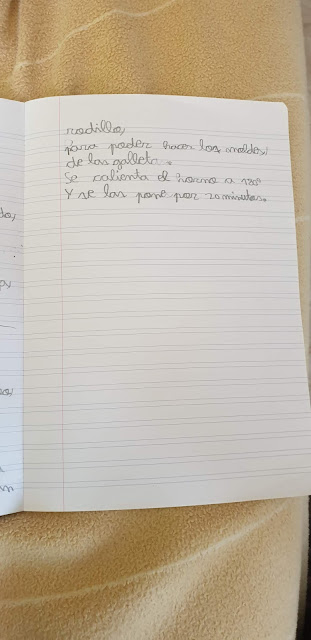 rodillo,
para poder hacer los moldes,
de las gallets.
Se calienta el horno a 180º
Y se las pone por 20 minutos.
do,